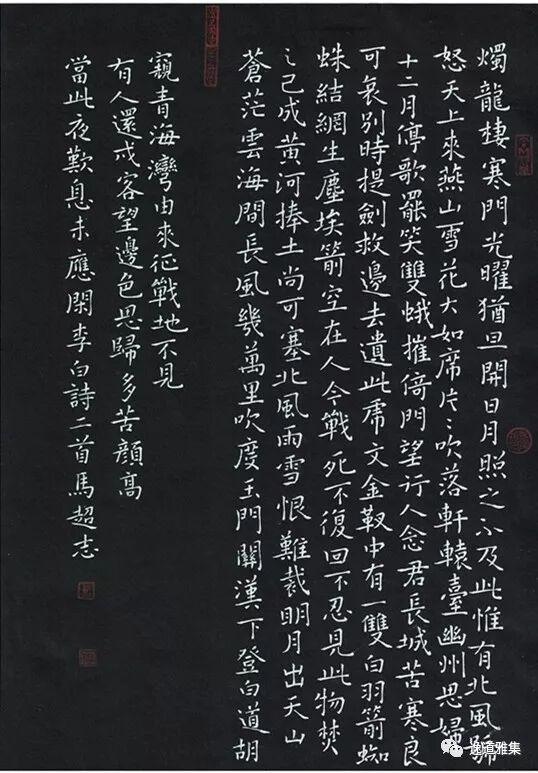 燭龍棲寒門光曜猶旦開日月照之不及此惟有北風號
怒天上來燕山雪花大如席片〻吹落軒轅臺幽州思婦
十二月停歌罷笑雙蛾摧倚門望行人念君長城苦寒良
可哀別時提劍救邊去遺此虎文金靫中有一雙白羽箭蜘
蛛結網生塵埃箭空在人今戰死不復回不忍見此物焚
之已成黃河捧土尚可塞北風雨雪恨難裁明月出天山
蒼茫雲海間長風幾萬里吹度玉門關漢下登白道胡
窺青海灣由來征戰地不見
有人還戍客望邊色思歸多苦顏高
當此夜歎息未應閑李白詩二首馬超志
道雅集